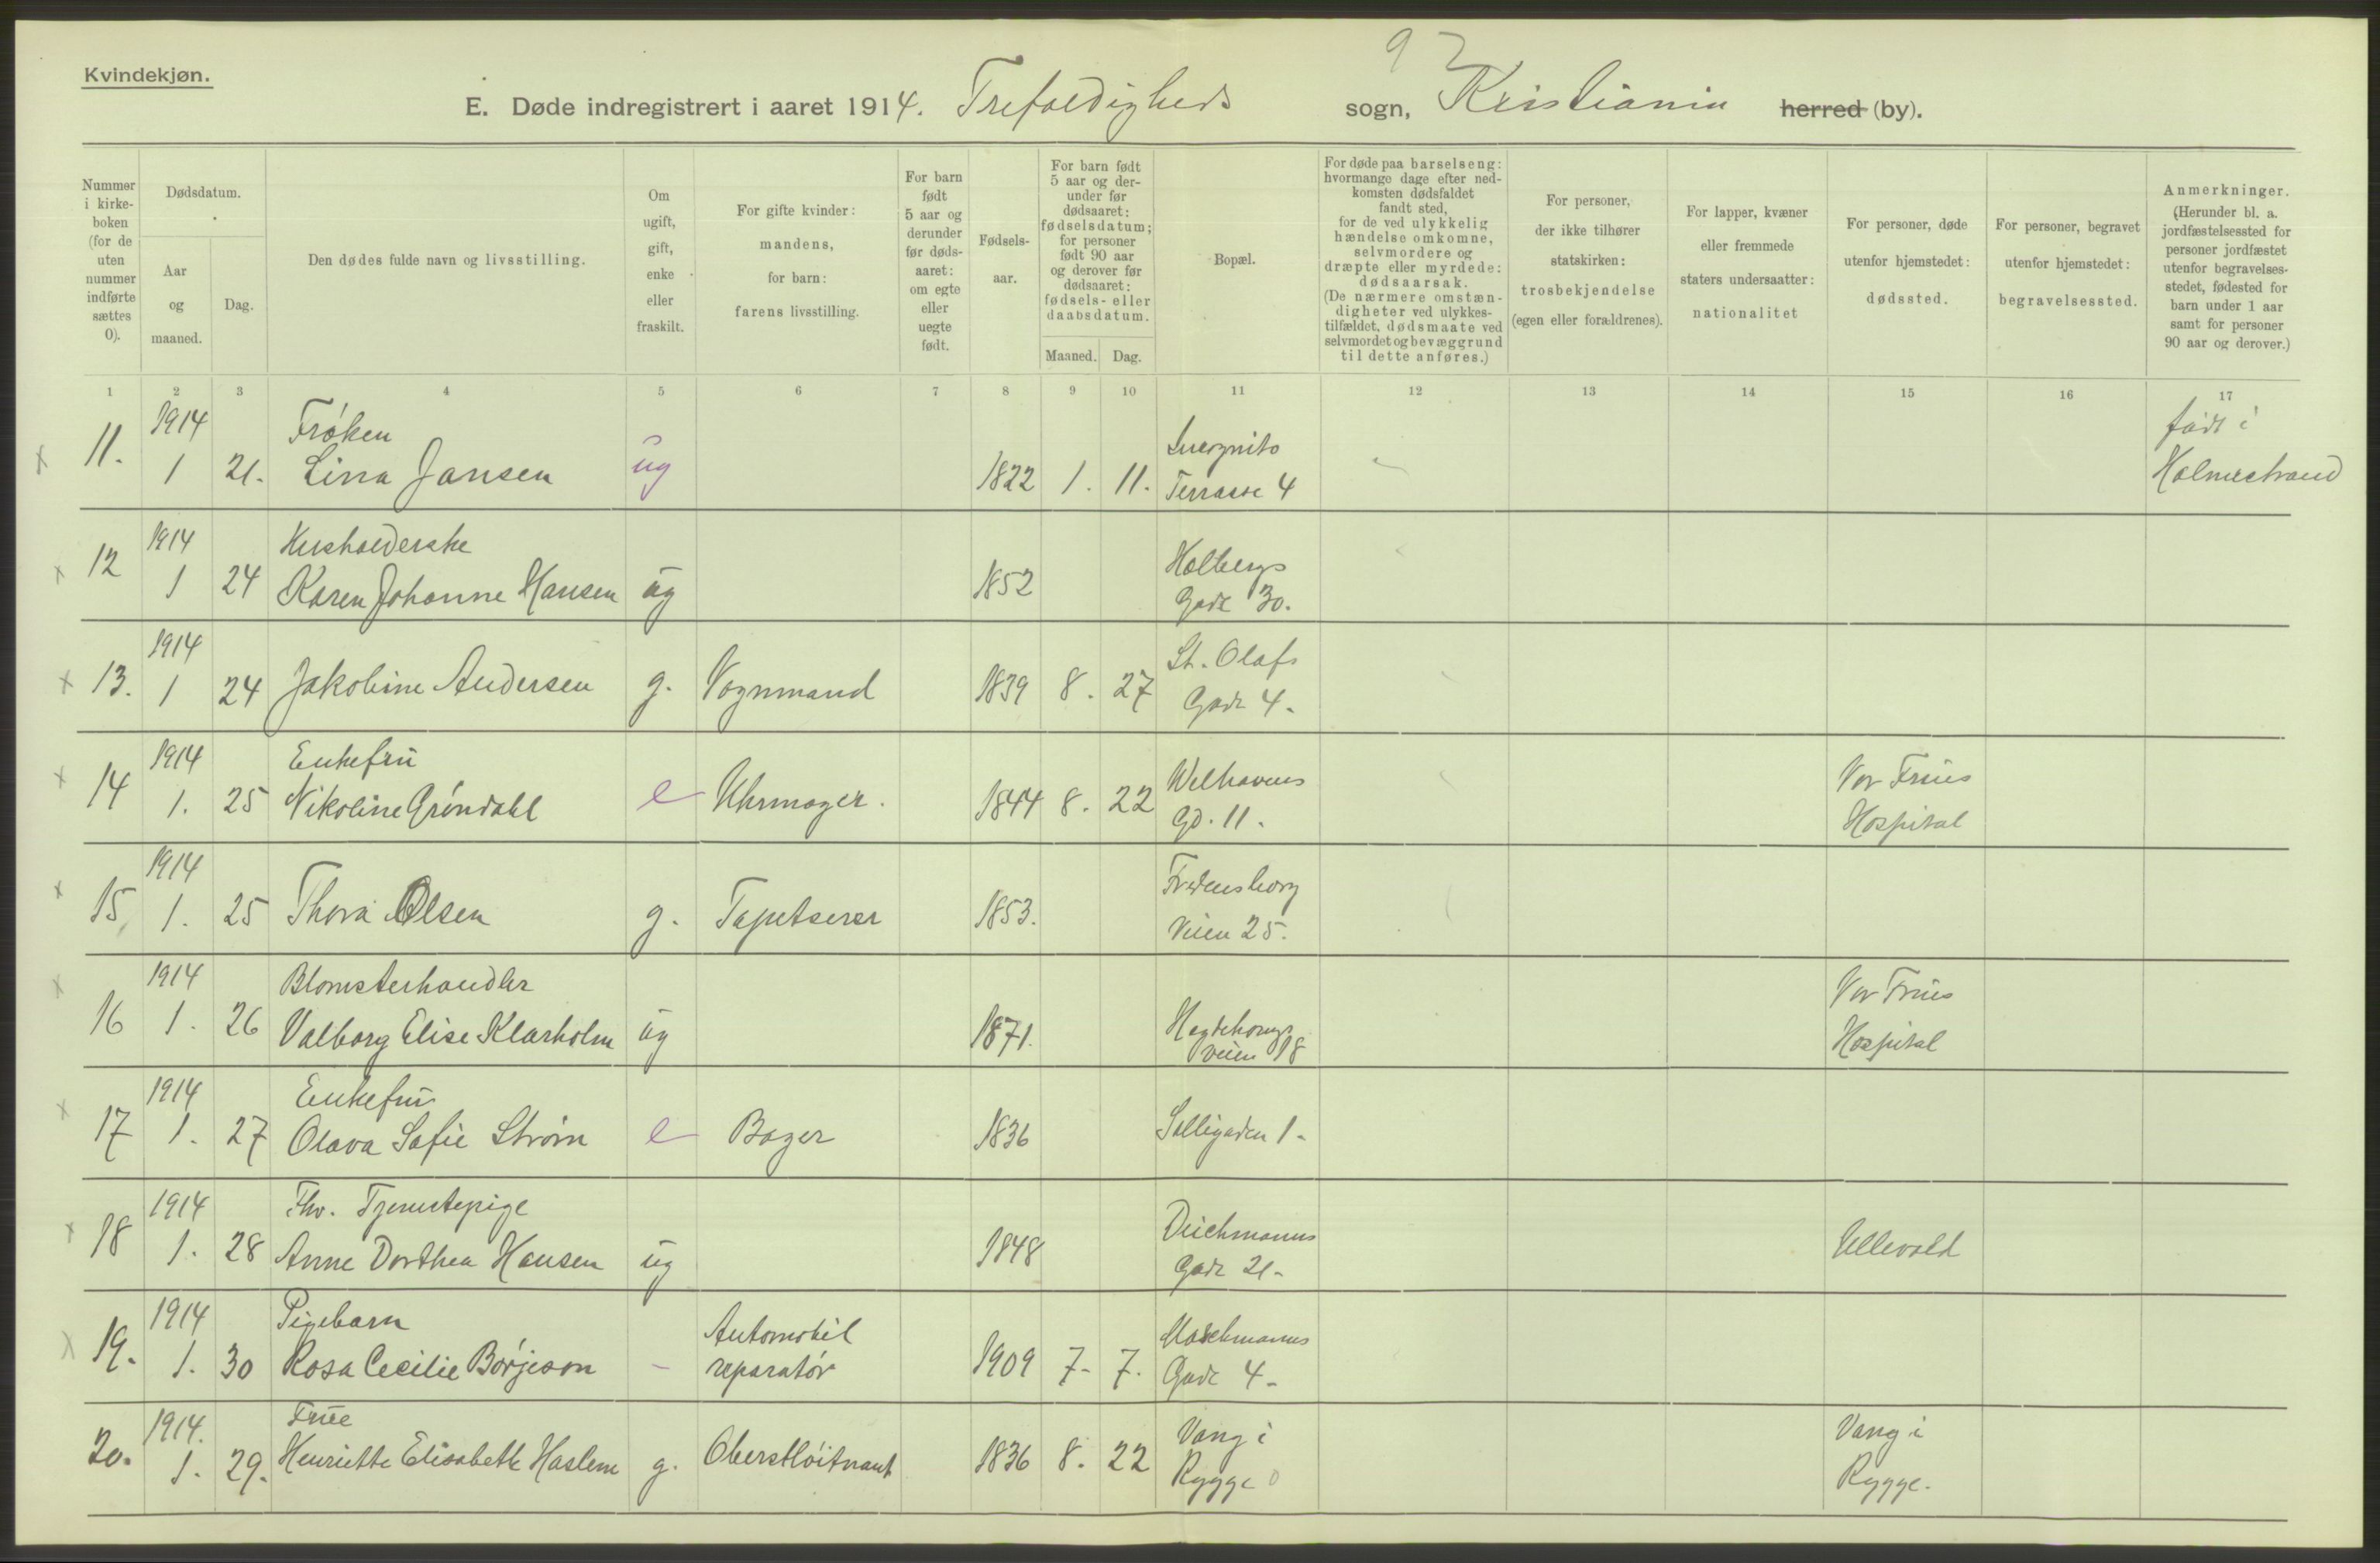 92
Kvindekjøn.
E. Døde indregistrert i aaret 1914. Trefoldigheds sogn, Kristiania herred (by).
Nummer i kirke-boken (for de uten nummer indførte sættes 0).
Dødsdatum.
Aar og maaned.
Dag.
Den dødes fulde navn og livsstilling.
Om ugift, gift, enke eller fraskilt.
For gifte kvinder: mandens, for barn: farens livsstilling.
For barn født 5 aar og derunder før døds-aaret: om egte eller uegte født.
Fødsels-aar.
For barn født 5 aar og der-under før dødsaaret: fødselsdatum; for personer født 90 aar og derover før dødsaaret: fødsels- eller daabsdatum.
Maaned. Dag.
Bopæl.
For døde paa barselseng: hvormange dage efter ned-komsten dødsfaldet fandt sted, for de ved ulykkelig hændelse omkomne, selvmordere og dræpte eller myrdede: dødsaarsak. (De nærmere omstæn-digheter ved ulykkes-tilfældet, dødsmaate ved selvmordet og bevæggrund til dette anføres.)
For personer, der ikke tilhører statskirken: trosbekjendelse (egen eller forældrenes).
For lapper, kvæner eller fremmede staters undersaatter: nationalitet
For personer, døde utenfor hjemstedet: dødssted.
For personer, begravet utenfor hjemstedet: begravelsessted.
Anmerkninger. (Herunder bl. a. jordfæstelsessted for personer jordfæstet utenfor begravelses-stedet, fødested for barn under 1 aar samt for personer 90 aar og derover.)
1 2 3 4 5 6 7 8 9 10 11 12 13 14 15 16 17
x 11. 1914 1 21. Frøken Lina Jansen ug 1822 1. 11. Incognito Terrasse 4 født i Holmestrand
x 12 1914 1 24 Husholderske Karen Johanne Hansen ug 1852 Holbergs Gade 30.
x 13. 1914 1 24 Jakobine Andersen g. Vognmand 1839 8. 27 St. Olafs Gade 4.
x 14 1914 1. 25 Enkefru Nikoline Grøndahl e Uhrmager. 1844 8. 22 Welhavens Gd. 11. Vor Frues Hospital
x 15 1914 1. 25 Thora Olsen g. Tapetserer 1853. Fredensborg Veien 25.
x 16 1914 1. 26 Blomsterhandler Valborg Elise Klarholm ug 1871. Hegdehougs veien 18 Vor Frues Hospital
x 17 1914 1. 27 Enkefru Olava Sofie Strøm e Bager 1836 Solligaden 1.
x 18 1914 1. 28 Fhv. Tjenestepige Anne Dorthea Hansen ug 1848 Deichmanns Gade 21. Ullevold
x 19. 1914 1. 30 Pigebarn Rosa Cecilie Børjeson - Automobil reparatør 1909 7. 7. Gade 4.
20. 1914. 1. 29. Frue Henriette Elisabeth Haslem g. Oberstløitnant 1836 8. 22 Vang i Rygge Vang i Rygge.